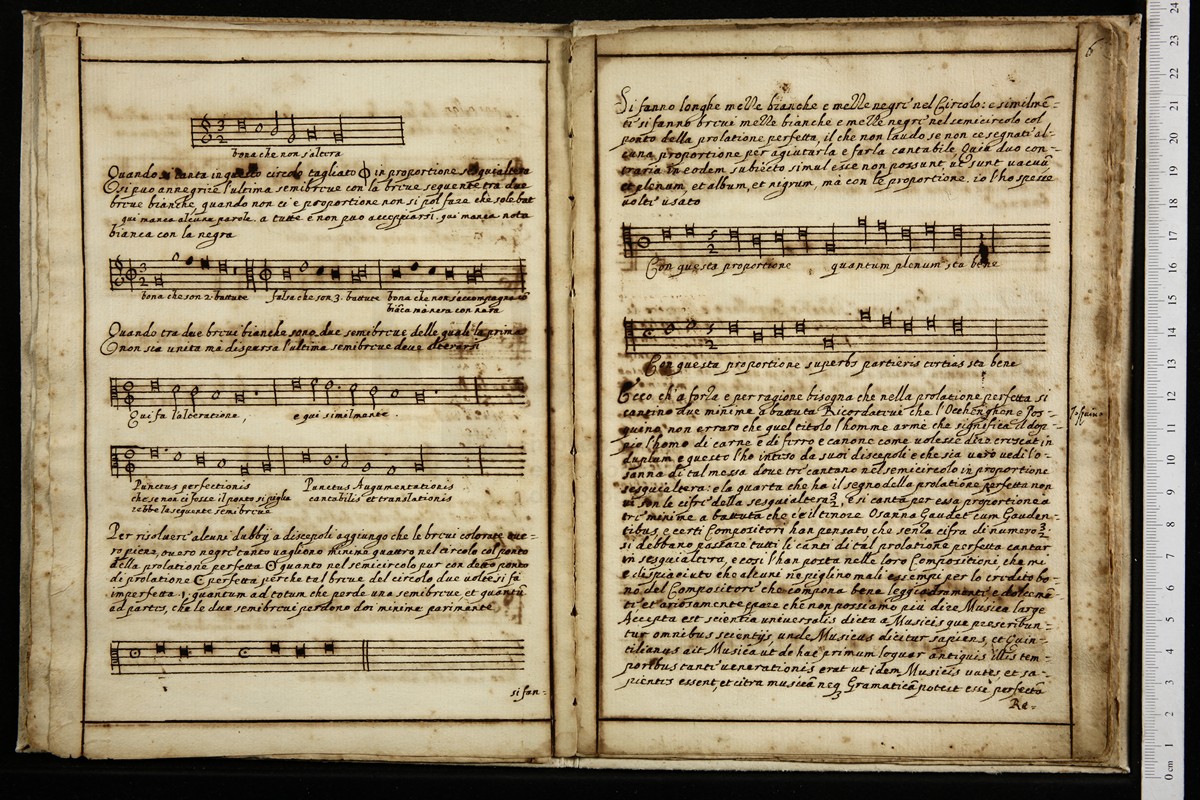 bona che non s'altera
Quando si canta in questo circolo tagliato in proportione sesquialtera
si puo annegrire l'ultima semibreue con la breue seguente tra due
breue bianche, quando non ci e proportione non si pol fare che sole bat
qui manca alcune parole. a tutte e non puo accoppiarsi. qui manca nota
bianca con la negra
3
2
3
2
bona che son 2. battute falsa che son 3. battute bona che non s'accompagna
biãca ma nera con nara
Quando tra due breue bianche sono due semibreue delle quali la prima
non sia unita ma dispersa l'ultima semibreue deue alterarsi
Qui fa l'alteratione, e qui similmente.
Punctus perfectionis Punctus Augumentationis
che se non ci fosse il ponto si piglia cantabilis et translationis
rebbe la seguente semibreue
Per risoluere alcuni dubbij a discepoli aggiungo che le breui colorate oue=
ro piene, ouero negre tanto uagliono minime quattro nel circolo col ponto
della prolatione perfetta quanto nel semicircolo pur con detto ponto
di prolatione perfetta perche tal breue del circolo due uolte si fa
imperfetta quantum ad totum che perde una semibreue et quantũ
ad partes, che le due semibreui perdono doi minime parimente
si fan=
6
Si fanno longhe mezze bianche e mezze negre nel Circolo: e similmẽ=
te si fanno breui mezze bianche e mezze negre nel semicircolo col
ponto della prolatione perfetta, il che non laudo se non ce segnati al=
cuna proportione per agiutarla e farla cantabile Quia duo con=
traria in eodem subiecto simul esse non possunt, ut sunt vacuũ
et plenum, et album, et nigrum, ma con le proportione. io l'ho spesse
uolte usato
5
2
Con questa proportione quantum plenum sta bene
5
2
Con questa proportione superb partieris sta bene
Ecco ch'a forza e per ragione bisogna che nella prolatione perfetta si
cantino due minime a battuta Ricordateui che l'Occhenghen e Jos=
quino, non erraro che quel titolo l'homme armè che significa il dop=
pio l'homo di carne e di firro e canone come uolesse dire crescat in
duplum e questo l'ho inteso da suoi discepoli e che sia uero uedi l'o=
sanna di tal messa doue tre cantano nel semicircolo in proportione
sesquialtera: e la quarta che ha il segno della prolatione perfetta non
ci son le cifre della sesquialtera 3/2, e si canta per essa proportione a
tre minime a battuta che è il tinore Osanna Gaudet cum Gauden=
tibus, e certi Compositori han pensato che senza cifra di numero 3/2
si debbano passare tutti li canti di tal prolatione perfetta cantar
in sesquialtera, e cosi l'han posta nelle loro Compositioni che mi
e dispiaciuto che alcuni ne piglino mali essempi per lo credito bo=
no del Compositore che compona bene leggiadramente e dolcemẽ=
te et ariosamente che non possiamo piu dire Musica large
Accepta est scientia universalis dicta a Musicis que prescribun=
tur omnibus scientijs, unde Musicus dicitur sapiens, et Quin=
tilianus ait Musica ut de hac primum loquar antiquis illis tem=
poribus tanti uenerationis erat ut idem Musicis uates, et sa=
pientes essent, et citra musicã neq Gramaticã potest esse perfecta
Re=
Josquino
24
23
22
21
20
19
18
17
16
15
14
13
12
11
10
9
8
7
6
5
4
3
2
1
0 cm